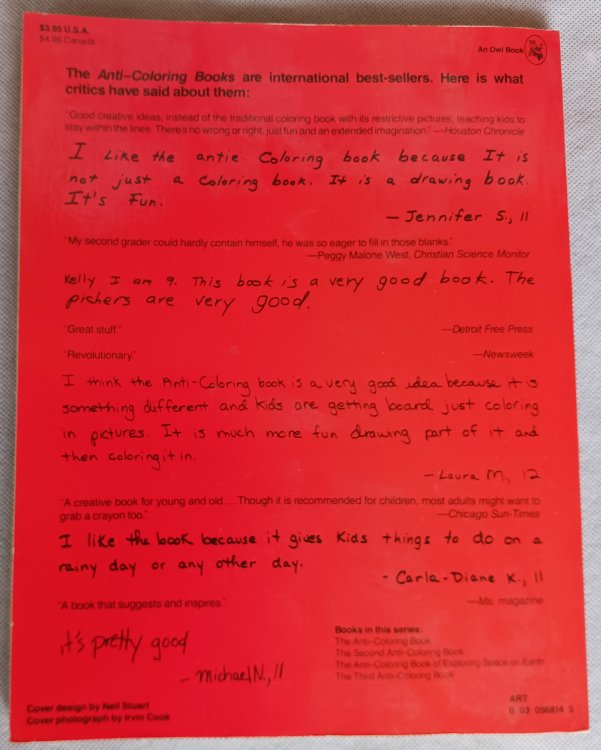 $3.95 U.S.A.
$4.95 Canada
An Owl Book
The Anti-Coloring Books are international best-sellers. Here is what
critics have said about them:
"Good creative ideas, instead of the traditional coloring book with its restrictive pictures, teaching kids to
stay within the lines. There's no wrong or right, just fun and an extended imagination." —Houston Chronicle
I Like the antie Coloring book because It is
not just a Coloring book. It is a drawing book.
It's Fun.
— Jennifer S., 11
"My second grader could hardly contain himself, he was so eager to fill in those blanks."
—Peggy Malone West, Christian Science Monitor
Kelly I am 9. This book is a very good book. The
pichers are very good.
"Great stuff." —Detroit Free Press
"Revolutionary." —Newsweek
I think the Anti-Coloring book is a very good idea because it is
something different and kids are getting board just coloring
in pictures. It is much more fun drawing part of it and
then coloring it in.
- Laura M., 12
"A creative book for young and old....Though it is recommended for children, most adults might want to
grab a crayon too." —Chicago Sun-Times
I like the book because it gives Kids things to do on a
rainy day or any other day.
- Carla-Diane K., 11
"A book that suggests and inspires." —Ms. magazine
it's pretty good
- Michael N., 11
Books in this series:
The Anti-Coloring Book
The Second Anti-Coloring Book
The Anti-Coloring Book of Exploring Space on Earth
The Third Anti-Coloring Book
Cover design by Neil Stuart
Cover photograph by Irvin Cook
ART
0 03 056814 5